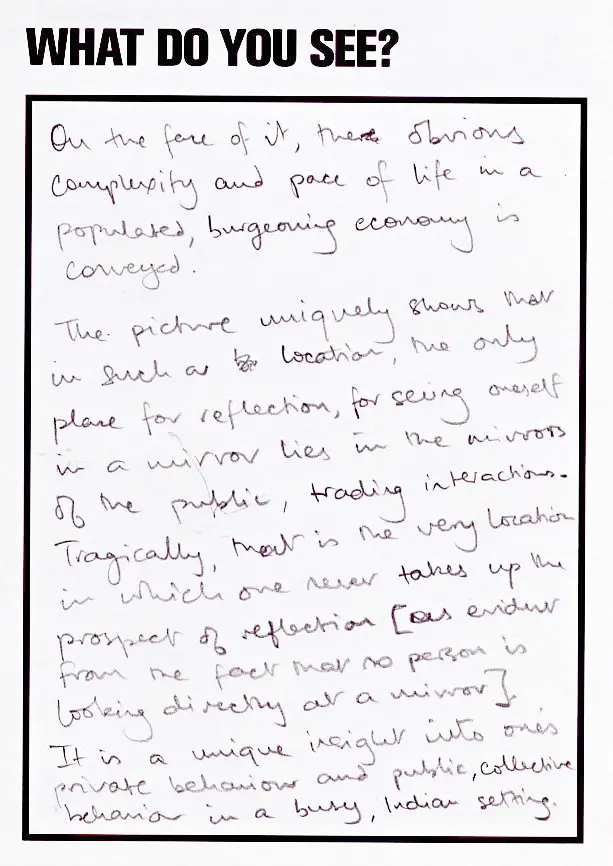 WHAT DO YOU SEE?
On the face of it, the obvious
complexity and pace of life in a
populated, burgeoning economy is
conveyed.
The picture uniquely shows that
in such a location, the only
place for reflection, for seeing oneself
in a mirror lies in the mirrors
of the public, trading interactions.
Tragically, that is the very location
in which one never takes up the
prospect of reflection [as evident
from the fact that no person is
looking directly at a mirror].
It is a unique insight into one's
private behaviour and public, collective
behavior in a busy, Indian setting.